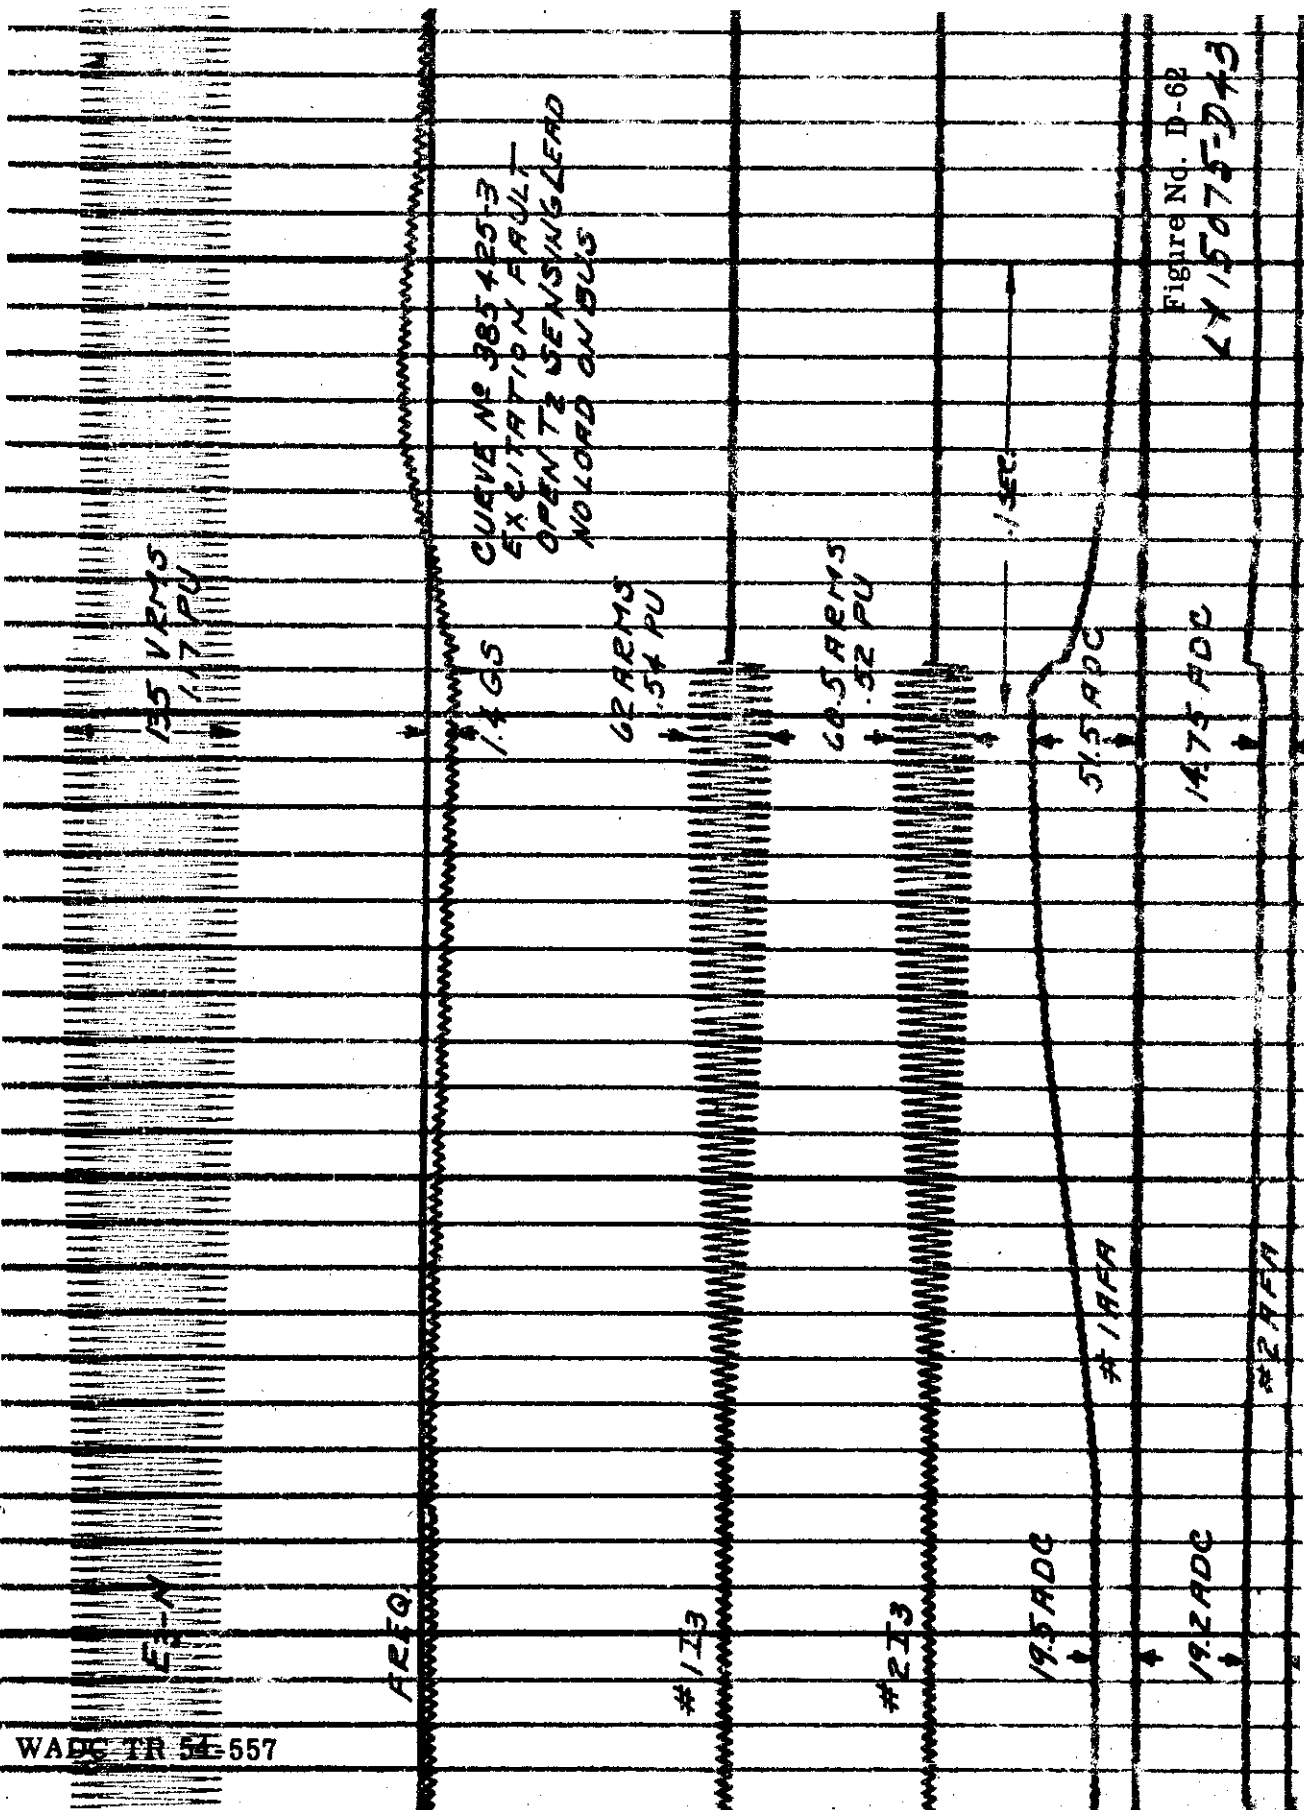 E3-N
135 VRMS
1.17 PU
FREQ.
1.4 GS
CURVE Nº 385425-3
EXCITATION FAULT
OPEN T2 SENSING LEAD
NO LOAD ON BUS
#1 I3
62 ARMS
.54 PU
#2 I3
60.5 ARMS
.52 PU
.1 SEC.
19.5 ADC
#1 AFA
51.5 ADC
19.2 ADC
#2 AFA
14.75 ADC
Figure No. D-62
LY15075-D43
WADC TR 54-557